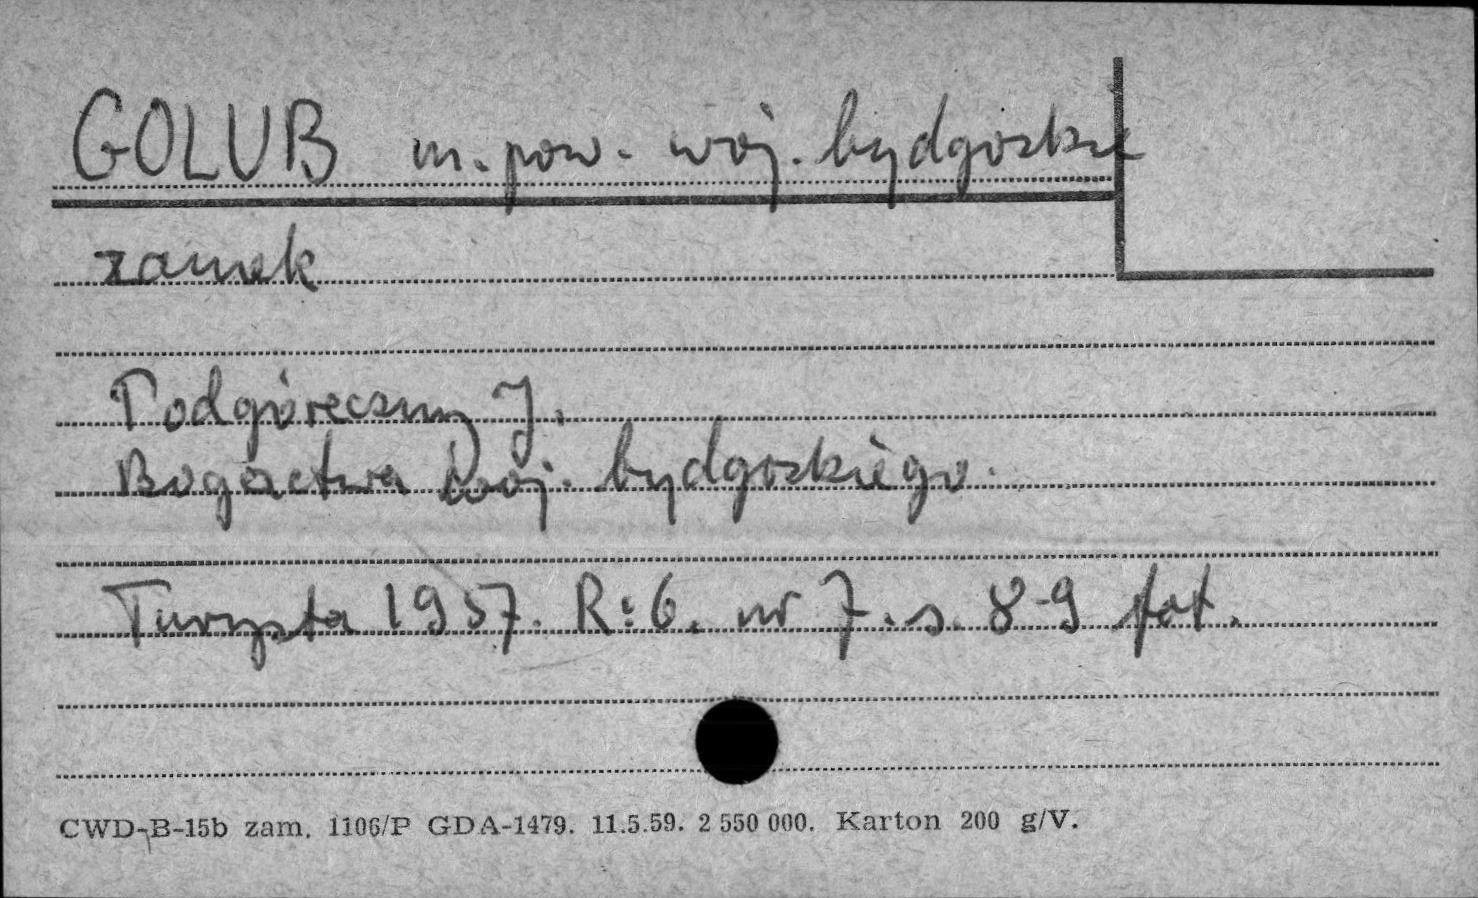 GOLUB m. pow. woj. bydgoskie
zamek
Podgóreczny J.
Bogactwa woj. bydgoskiego.
Turysta 1957. R: 6. nr 7. s. 8-9 fot.
CWD-B-15b zam. 1106/P GDA-1479. 11.5.59. 2 550 000. Karton 200 g/V.